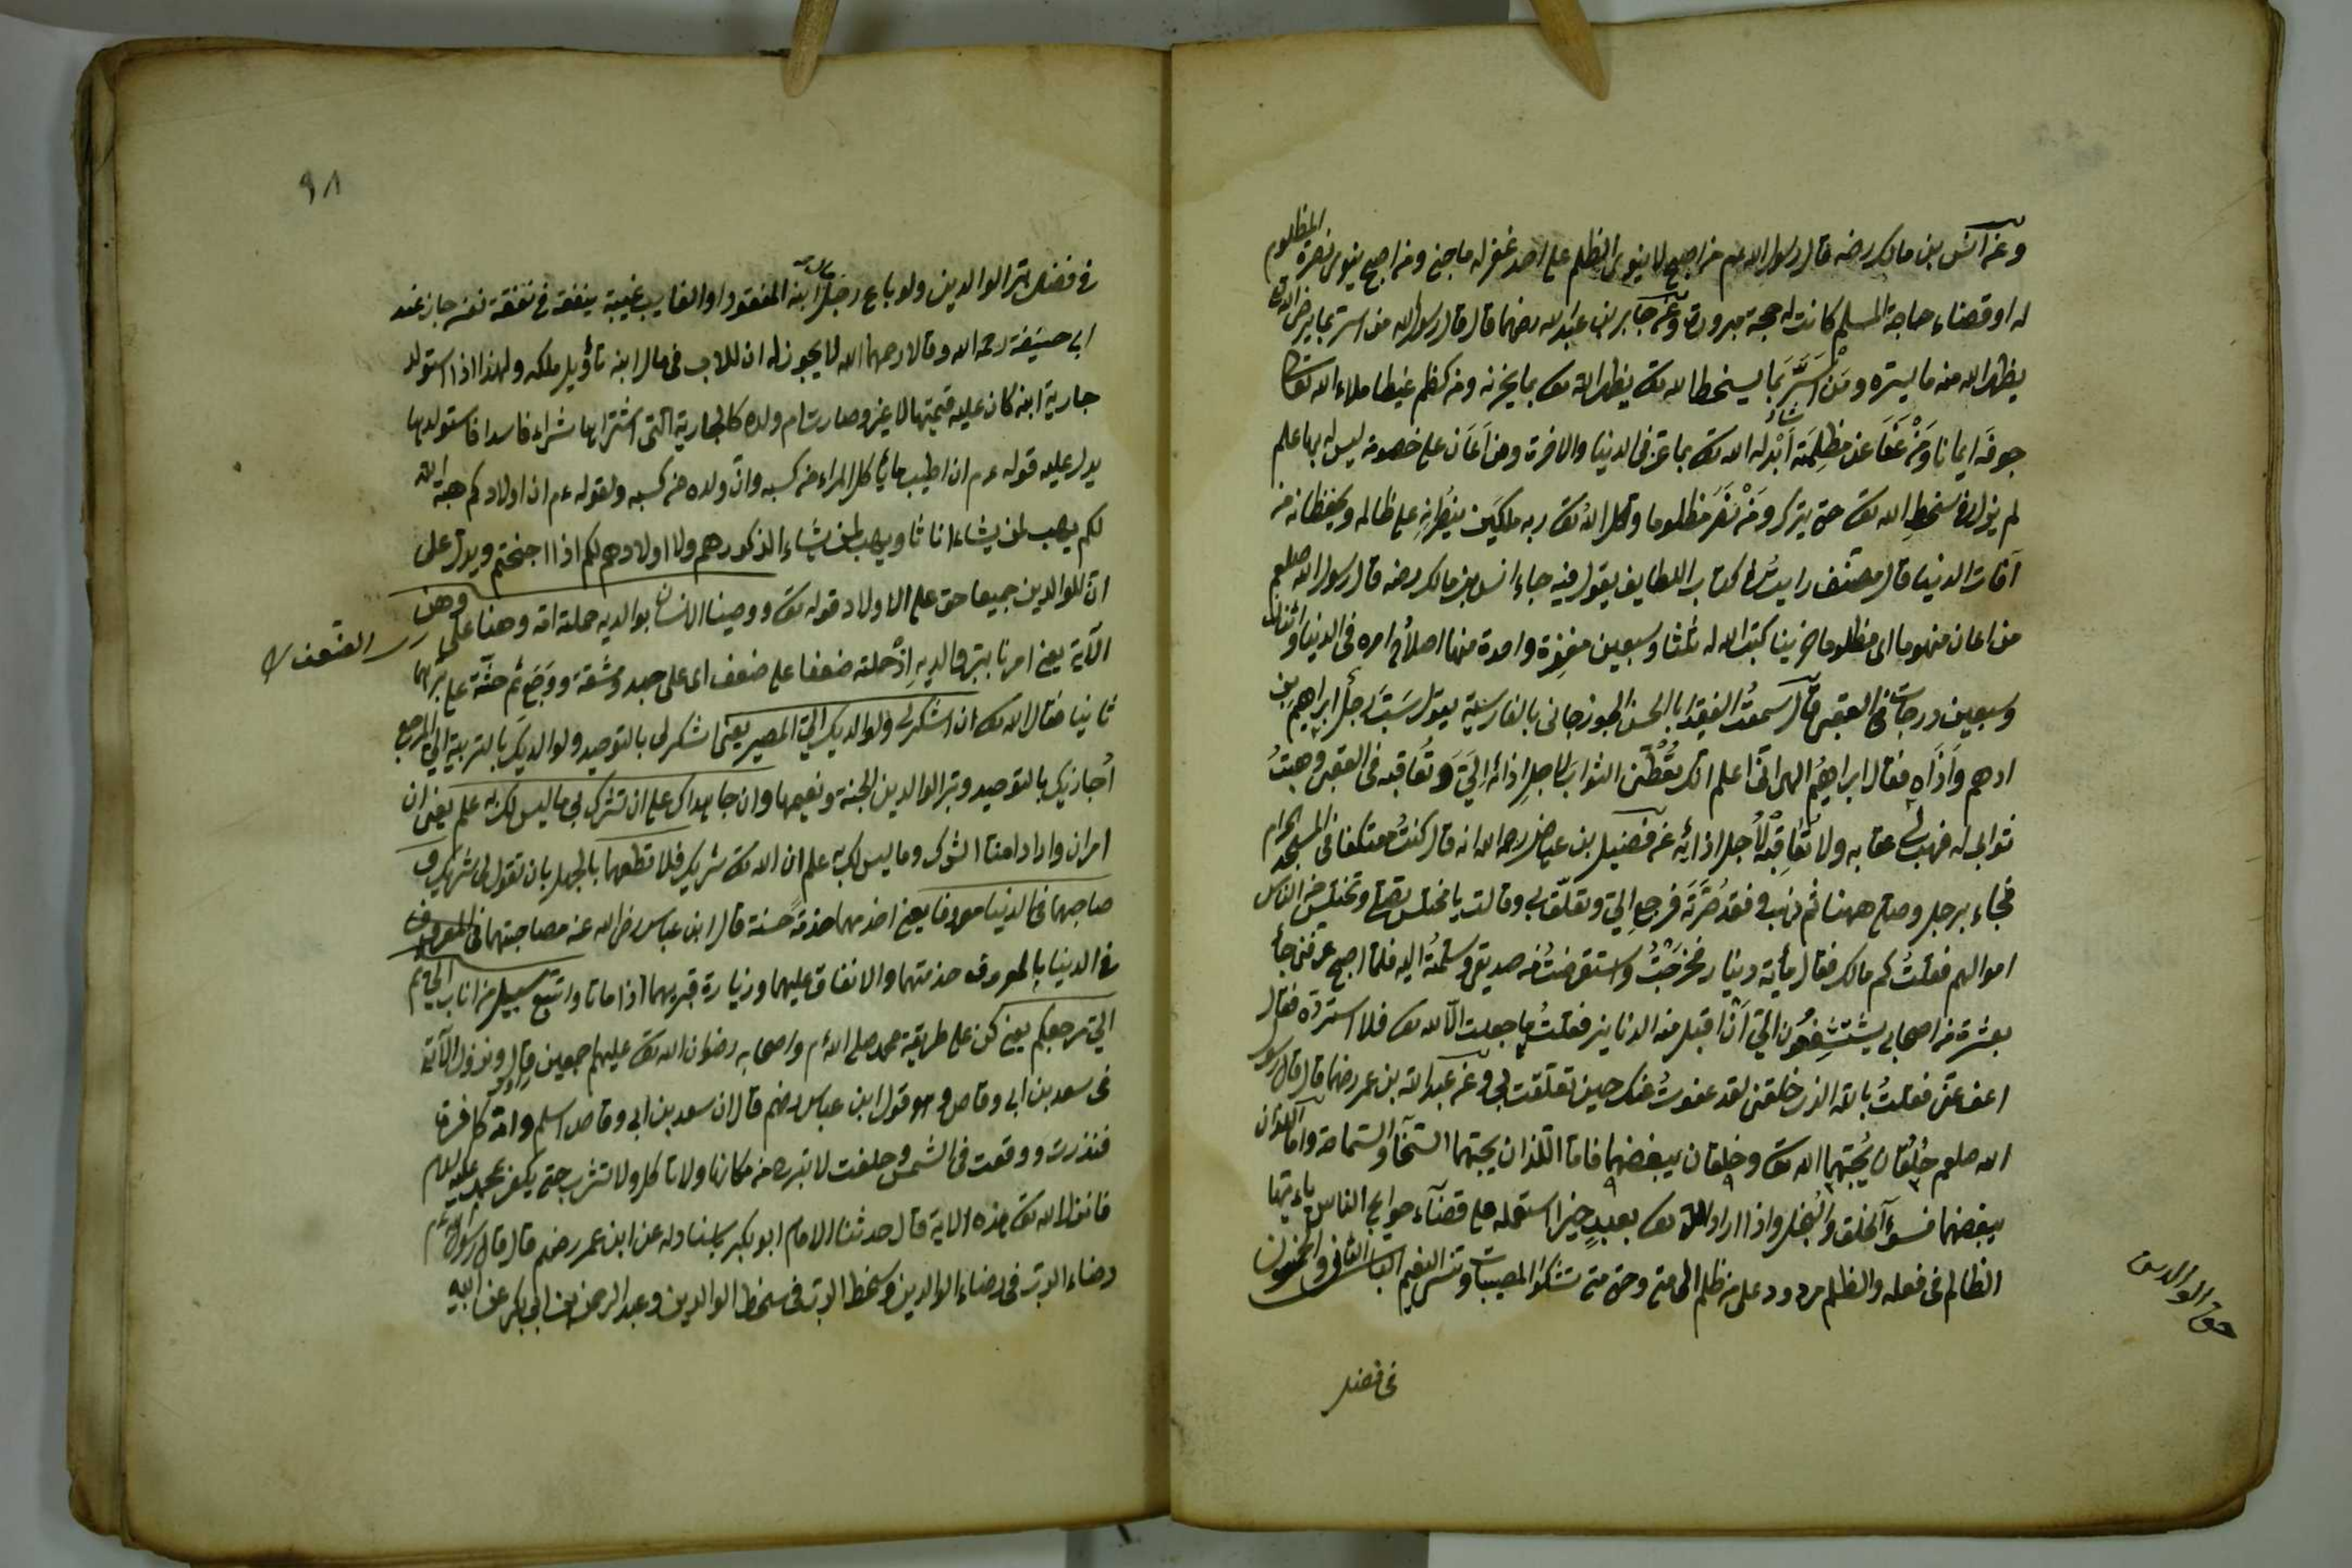 وعن انس بن مالك رضه قال رسول الله عم من اصبح لا ينوى الظلم على احد غفر له ما جنى ومن اصبح ينوى نصرة المظلوم
له او قضاء حاجة المسلم كانت له حجة مبرورة وعن جابر بن عبد الله رضهما قال قال رسول الله من استر بما يرضى الله
يظهر الله منه ما يسره ومن استر بما يسخط الله تع يظهر الله تع بما يحزنه ومن كظم غيظا ملاء الله تعالى
جوفه ايمانا ومن عفا عن مظلمة ابدله الله تع بها عزا فى الدنيا والاخرة ومن اعان على خصومة ليس له بها علم
لم يزل فى سخط الله تع حتى يترك ومن نصر مظلوما وكل الله تع به ملكين ينصرانه على ظالمه ويحفظانه من
آفات الدنيا قال مصنف رايت فى كتاب اللطايف يقول فيه جاء انس بن مالك رضه قال رسول الله صلعم
من اعان منهوما اى مظلوما حزينا كتب الله له ثلثا وسبعين مغفرة واحدة منها اصلاح امره فى الدنيا واثنتان
وسبعين درجات فى العقبى قال سمعت الفقيه ابا الحسن الجوزجانى بالفارسية يقول سبّ رجل ابراهيم بن
ادهم وآذاه فقال ابراهيم الهى انى اعلم انك تعطى الثواب لاجل اذائه الىّ وتعاقبه فى العقبى وهبت
ثوابى له فهب لى عقابه ولا تعاقبه لاجل اذائه عن فضيل بن عياض رحمه الله انه قال كنت معتكفا فى المسجد الحرام
فجاء برجل وصلى ههنا ثم ذهب فقد صرته فرجع الى وتعلق بى وقالت يا مختلس تصلى وتختلس من الناس
اموالهم فقلت كم مالك فقال مأية دينار فخرجت واستقرضت من صديقى وسلمته اليه فلما اصبح عرفنى جاء
بعشرة من اصحابى يستشفعون الى ان اقبل منه الدنانير فقلت ما جعلت لله تع فلا استرده فقال
اعف عنى فقلت بالله الذى خلقنى لقد عفوت عنك حين تعلقت بى وعن عبد الله بن عمر رضهما قال قال رسول
الله صلعم خلقان يحبهما الله تع وخلقان يبغضهما فاما اللذان يحبهما السخاء والسماحة واما اللذان
يبغضهما فسوء الخلق والبخل واذا اراد الله تع بعبد خيرا استعمله على قضاء حوايج الناس
الظالم فى فعله والظلم مردود على من ظلم الى متى وحتى متى تشكوا المصيبات وتنسى النعيم الباب الثانى والخمسون
حق الوالدين
فى فضل
٩٨
فى فضل بر الوالدين ولو باع رجل مال ابنه المفقود او الغايب غيبة ينفقه فى نفقة نفسه جاز عند
ابى حنيفة رحمه الله وقالا رحمهما الله لا يجوز له ان للاب فى مال ابنه تأويل ملكه ولهذا اذا استولد
جارية ابنه كان عليه قيمتها لا غير وصارت ام ولده كالجارية التى اشتراها شراء فاسدا فاستولدها
يدل عليه قوله عم ان اطيب ما يأكل المراء من كسبه وان ولده من كسبه ولقوله عم ان اولادكم هبة الله
لكم يهب لمن يشاء اناثا ويهب لمن يشاء الذكور هم ولا اولادهم لكم اذا احتجتم ويدل على
ان للوالدين جميعا حق على الاولاد قوله تع ووصينا الانسان بوالديه حملته امه وهنا على وهن
الضعف
الآية يعنى امرنا ببر والديه اذ حملته ضعفا على ضعف اى على جهد ومشقة ووضع ثم حثه على برهما
ثانيا فقال الله تع ان اشكر لى ولوالديك الى المصير يعنى اشكر لى بالتوحيد ولوالديك بالتربية الى المرجع
أجازيك بالتوحيد وبر الوالدين الجنة ونعيمها وان جاهداك على ان تشرك بى ما ليس لك به علم يعنى ان
امران وارادا منك الشرك وما ليس لك به علم ان الله تع شريك فلا تطعهما بالجهل بان تقول لى شريك و
صاحبهما فى الدنيا معروفا يعنى اخدمهما خدمة حسنة قال ابن عباس رضى الله عنه مصاحبتهما فى المعروف
فى الدنيا بالمعروف خدمتهما والانفاق عليهما وزيارة قبريهما اذا ماتا واتبع سبيل من اناب الى ثم
الى مرجعكم يعنى كن على طريقة محمد صلى الله عم واصحابه رضوان الله تع عليهم اجمعين ونزول الآية
فى سعد بن ابى وقاص وهو قول ابن عباس رضهم قال ان سعد بن ابى وقاص اسلم وامه كافرة
فنذرت ووقعت فى الشمس وحلفت لا تبرح من مكانها ولا تأكل ولا تشرب حتى يكفر بمحمد عليه السلام
فانزل الله تع هذه الاية قال حدثنا الامام ابو بكر باسناده عن ابن عمر رضهم قال قال رسول الله عم
رضاء الرب فى رضاء الوالدين وسخط الرب فى سخط الوالدين وعبد الرحمن بن ابى بكر عن ابيه